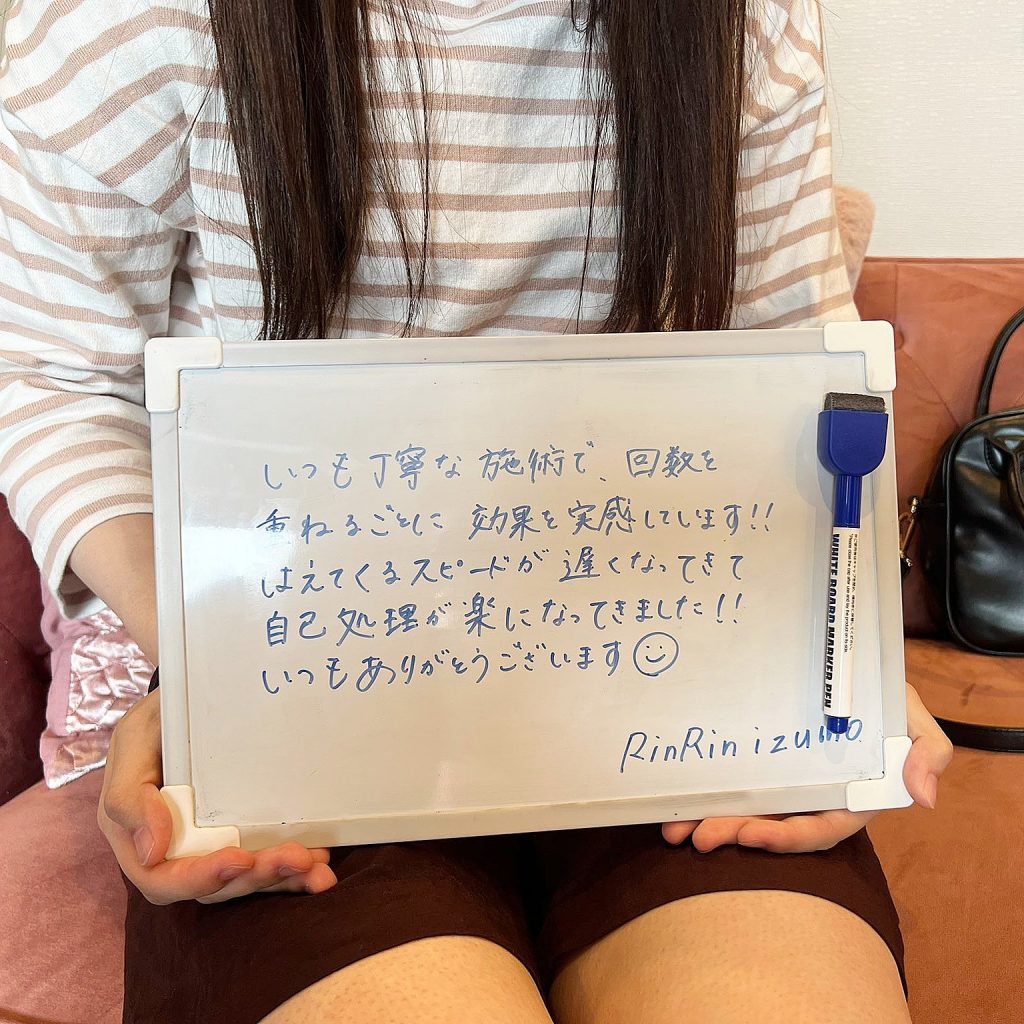 いつも丁寧な施術で、回数を
重ねるごとに 効果を実感しています!!
はえてくるスピードが 遅くなってきて
自己処理が楽になってきました!!
いつもありがとうございます
RinRin izumo
WHITE BOARD MARKER PEN